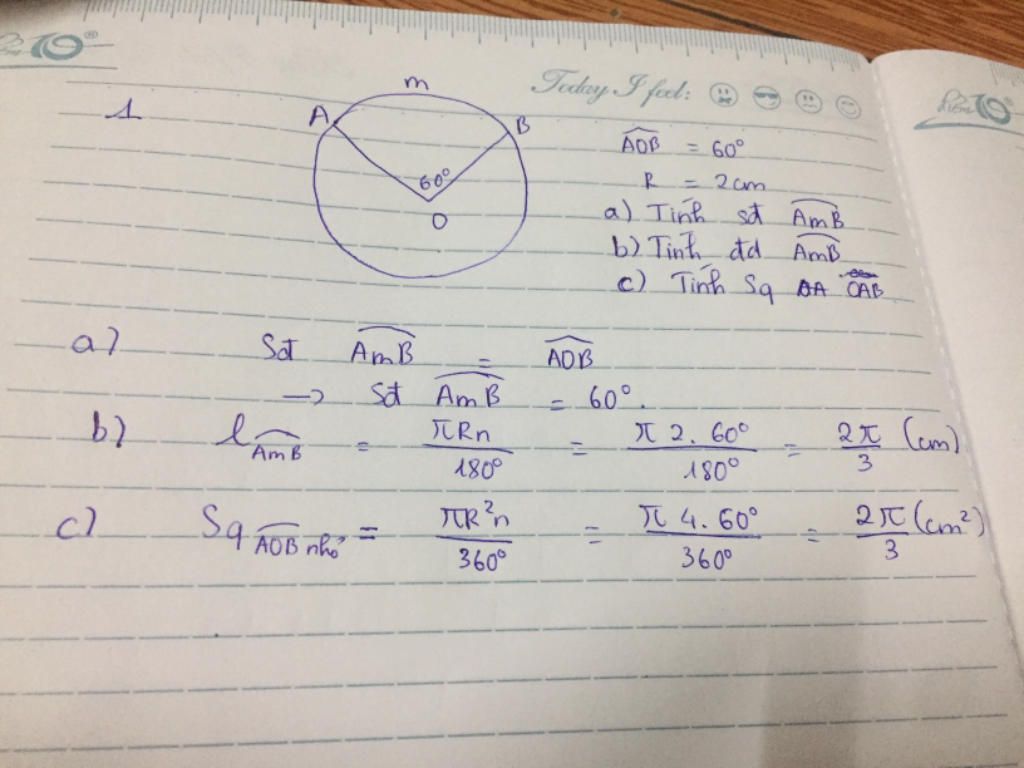 Today I feel:
1
m
A
B
60°
O
AOB = 60°
R = 2cm
a) Tính sđ AmB
b) Tính đd AmB
c) Tính Sq OAB
a) Sđ AmB = AOB
→ Sđ AmB = 60°.
b) l AmB = πRn/180° = π2.60°/180° = 2π/3 (cm)
c) Sq AOB nhỏ = πR²n/360° = π4.60°/360° = 2π/3 (cm²)